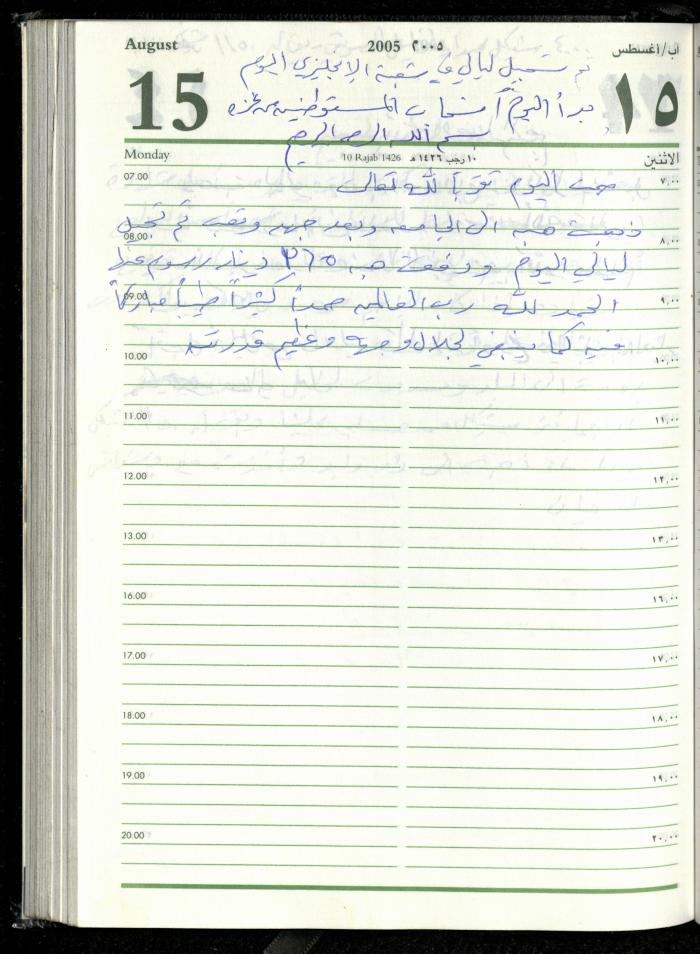 August 2005 ٢٠٠٥ آب/اغسطس
15 ١٥
تم تسجيل ليالي في شعبة الإنجليزي اليوم
بدأ اليوم انسحاب المستوطنين من غزة
بسم الله الرحمن الرحيم
Monday 10 Rajab 1426 ١٠ رجب ١٤٢٦ هـ الاثنين
07.00 ٧,٠٠
صمت اليوم تقرباً لله تعالى
ذهبت هبه الى الجامعه وبعد جهد وتعب تم تسجيل
08.00 ٨,٠٠
ليالي اليوم ودفعت هبه ٢٦٥ دينار رسوم عنها
09.00 ٩,٠٠
الحمد لله رب العالمين حمداً كثيراً طيباً مباركاً
فيه كما ينبغي لجلال وجهه وعظيم قدرته
10.00 ١٠,٠٠
11.00 ١١,٠٠
12.00 ١٢,٠٠
13.00 ١٣,٠٠
16.00 ١٦,٠٠
17.00 ١٧,٠٠
18.00 ١٨,٠٠
19.00 ١٩,٠٠
20.00 ٢٠,٠٠